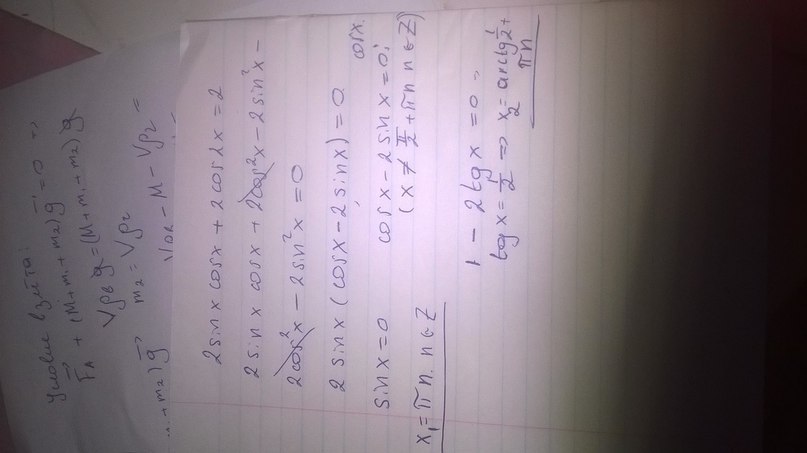 условие взлёта:
F_A + (M+m₁+m₂)g = 0 =>
Vρ_в g = (M+m₁+m₂)g
...+m₂)g m₂ = Vρ₂
- M - Vρ₂ =
2 sin x cos x + 2 cos 2x = 2
2 sin x cos x + 2cos²x - 2 sin²x -
2cos²x - 2 sin²x = 0
2 sin x (cos x - 2 sin x) = 0
sin x = 0 cos x - 2 sin x = 0; cos x.
x₁ = πn, n ∈ Z (x ≠ π/2 + πn n ∈ Z)
1 - 2 tg x = 0 ..
tg x = 1/2 => x₂ = arctg 1/2 +
πn